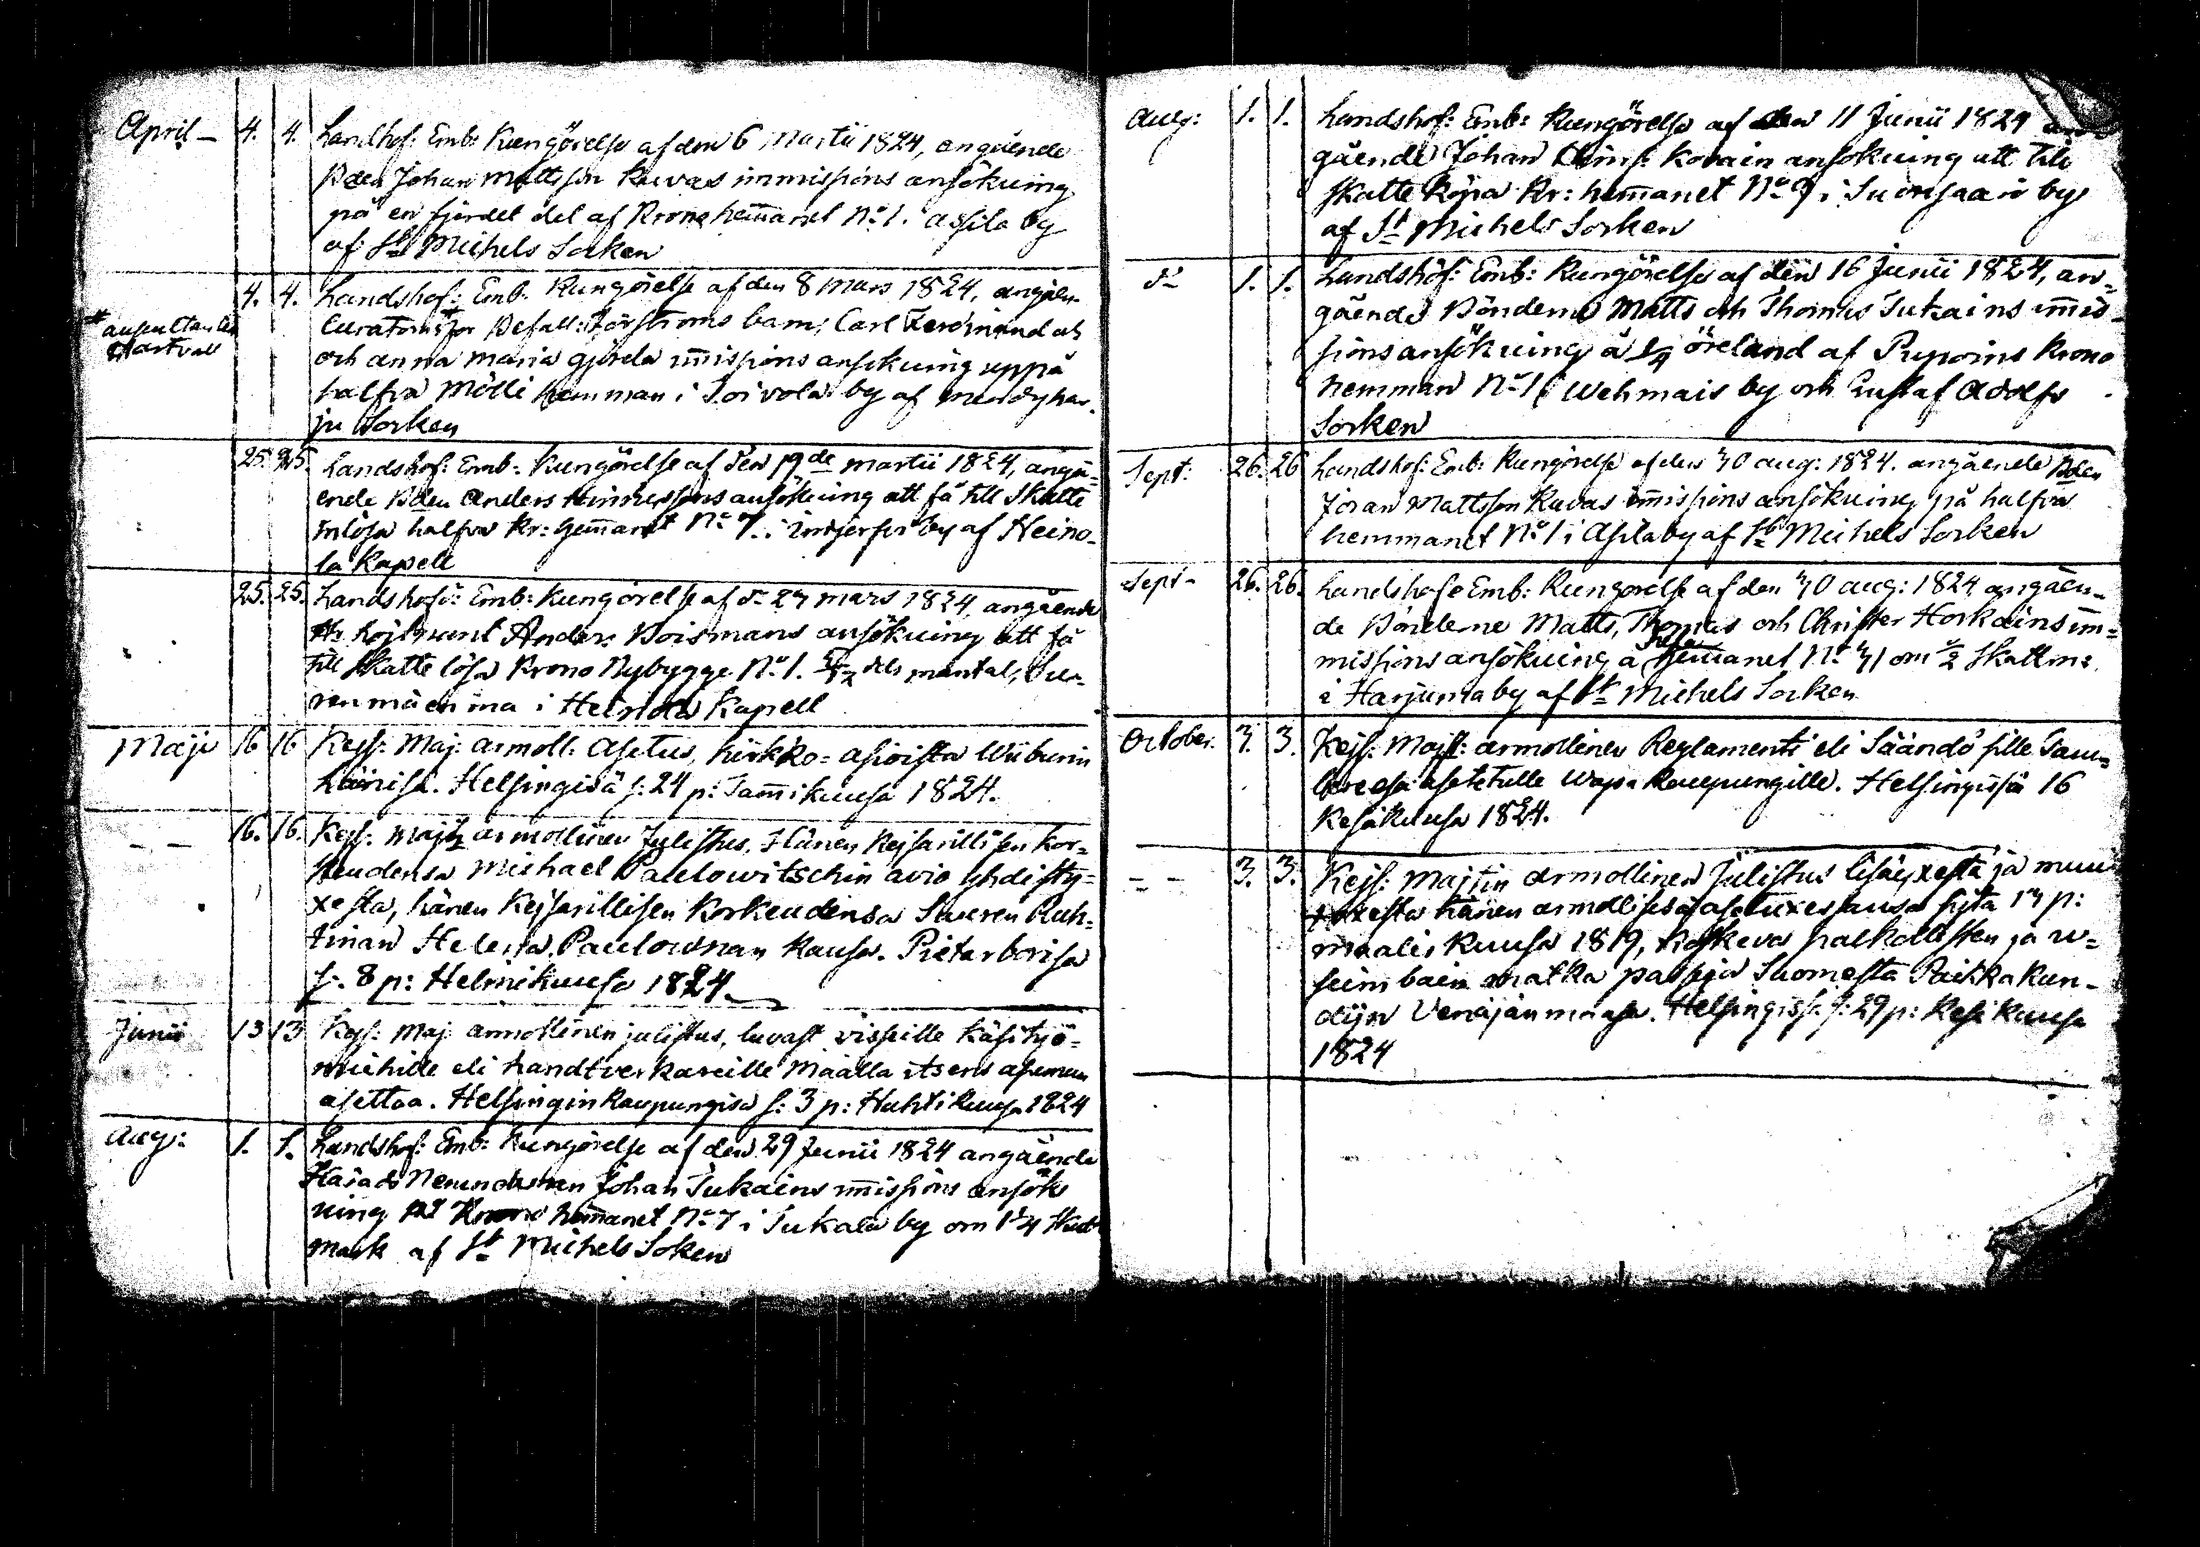 April – 4. 4. Landhof: Emb: Kungörelse af den 6 Martii 1824, angående
Bden Johan Mattsson Kuvas immissions ansökning
på en fjerdel del af Krono hemanet No 1. i Assila by
af St Michels Socken
4. 4. Landshof: Emb: Kungörelse af den 8 Mars 1824, angåen-
* auscultanten
Hartvall
Curatorns * för Befall: Förströms barn, Carl Ferdinand
och Anna Maria gjorda imissions ansökning uppå
halfva Mölli hemman i Toivola by af Mendyhar-
ju Socken
25. 25. Landshof: Emb: Kungörelse af den 19de Martii 1824, angå-
ende Bden Anders ansökning att få till Skatte
inlösa halfva Kr: hemanet No 7. i by af Heino-
la Kapell
25. 25. Landshof: Emb: Kungörelse af dn 23 Mars 1824, angående
Anders Boismans ansökning att få
till Skatte lösa Krono Nybygge No 1. dels mantal,
i Heinola Kapell
Maji 16 16 Kejs: Maj: armoll: Asetus, kirkko-asioista Wiiburin
Läänisä. Helsingisä s: 24 p: Tammikuusa 1824.
– – 16. 16. Kejs: Majtz armollinen Julistus, Hänen Kejsarillisen Kor-
keudensa Michael Paulowitschin avio yhdisty-
xestä, hänen Kejsarillisen Korkeudensa Suuren Ruh-
tinan Helena Paulownan kansa. Pietarborisa
s. 8 p: Helmikuusa 1824.
Junii 13 13 Kejs: Maj: armollinen julistus, luvast visseille Käsityö-
miehille eli handtverkareille Maalla itsens asumaan
asettaa. Helsingin kaupungisa s: 3 p: Huhtikuusa 1824
Aug: 1. 1. Landshof: Emb: Kungörelse af den 29 Junii 1824 angående
Härads Nemndeman Johan Tukains imissions ansök
ning på Krono hemanet No 7 i Tukala by om 1 1/4 Skatt
mark af St Michels Soken
Aug: 1. 1. Landshof: Emb: Kungörelse af den 11 Junii 1824 an-
gående Johan Korain ansökning att till
skatte köpa Kr: hemanet No 3 i Suonsaari by
af St Michels Socken
dn 1. 1. Landshöf: Emb: Kungörelse af den 16 Junii 1824, an-
gående Bönderne Matts och Thomas Tukains imis-
sions ansökning å 1/4 öreland af Pupoins Krono
hemman No 1 i Wehmais by och Gustaf Adolfs
Socken
Sept: 26. 26 Landshof: Emb: Kungörelse af den 30 Aug: 1824. angående Bden
Joran Mattsson Kuvas imissions ansökning på halfva
hemmanet No 1 i Asila by af St Michels Socken
Sept – 26. 26. Landshofs Emb: Kungorelse af den 30 Aug: 1824 angåen-
de Bönderne Matts, Thomas och Christer Horkains im-
missions ansökning å hemanet No 31 om 1/2 Skattm:
i Harjuma by af St Michels Socken
October. 3. 3. Kejs: Majt: armollinen Reglamenti eli Säändö sille
asetetulle Wapa Kaupungille. Helsingissä 16
Kesäkuusa 1824.
– – 3. 3. Kejs: Majtin armollinen Julistus lisäyxestä ja muu
toxesta hänen armollisesa asetuxesansa siitä 13 p:
maaliskuusa 1819, koskeva palkollisten ja u-
seimbain matka passeja Suomesta Paikkakun-
dijn Venäjän maasa. Helsingissä s: 29 p: Kesäkuusa
1824